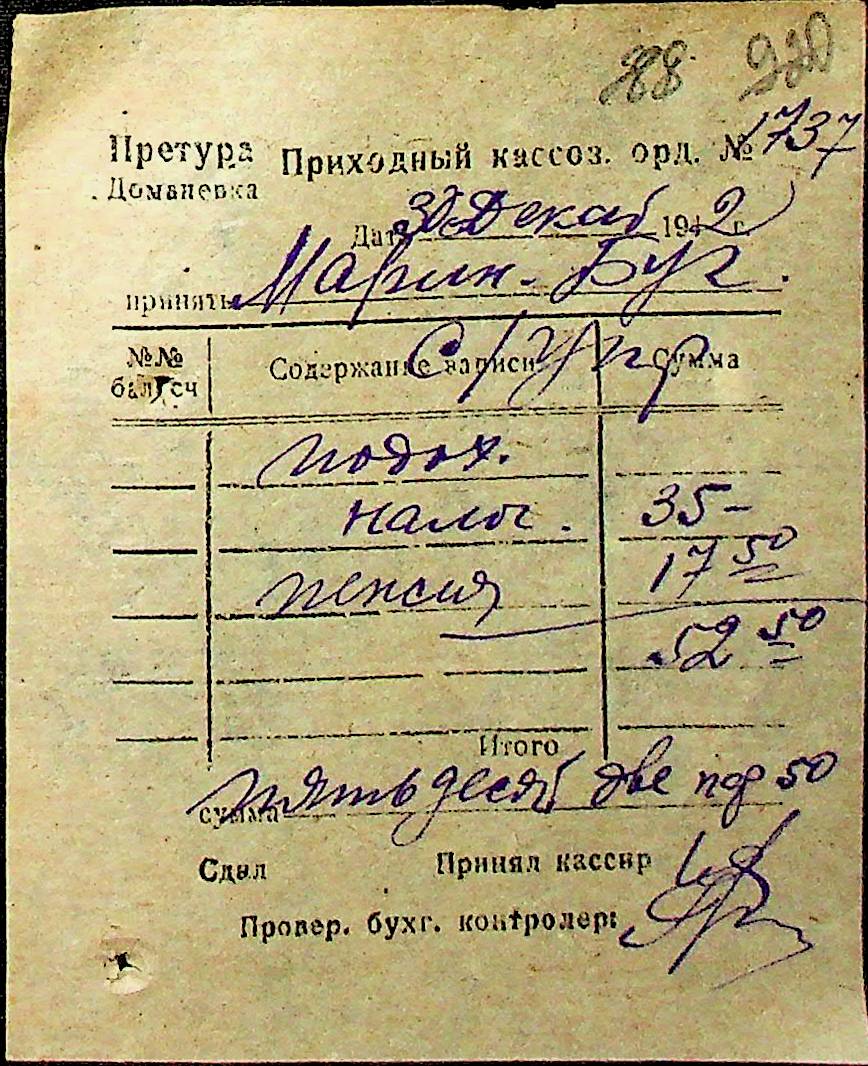 88 330
Претура Приходный кассов. орд. № 1737
Доманевка
Дата 30 Декаб 1942 г.
принять Марин-Буг.
С/Упр
№№ бал. сч Содержание записи Сумма
подох.
налог. 35-
пенсия 17 50
52 50
Итого
сумма пятьдесят две 50
Сдал Принял кассир
Провер. бухг. контролер: